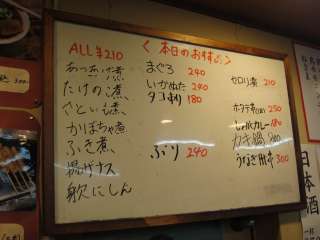 <本日のおすすめ>
ALL ¥210
あつあげ煮
たけのこ煮
さといも煮
かぼちゃ煮
ふき煮
揚げナス
身欠にしん
まぐろ 240
いかぬた 240
タコぶつ 180
ぶり 240
セロリ煮 210
ホタテ煮 250
カレー 180
カキ鍋
うなぎ肝煮 300
日本酒